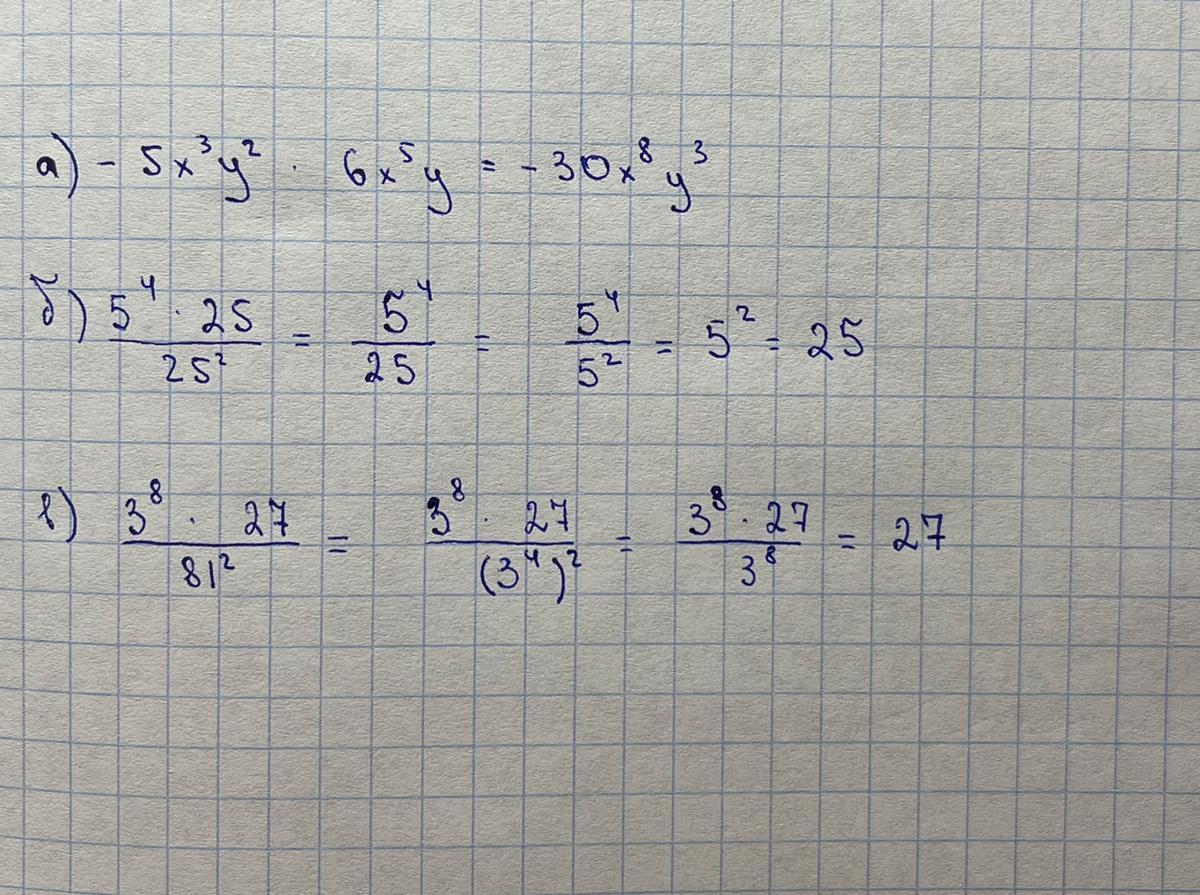 а) - 5x³y² · 6x⁵y = -30x⁸y³
б) 5⁴ · 25 / 25² = 5⁴ / 25 = 5⁴ / 5² = 5² = 25
в) 3⁸ · 27 / 81² = 3⁸ · 27 / (3⁴)² = 3⁸ · 27 / 3⁸ = 27